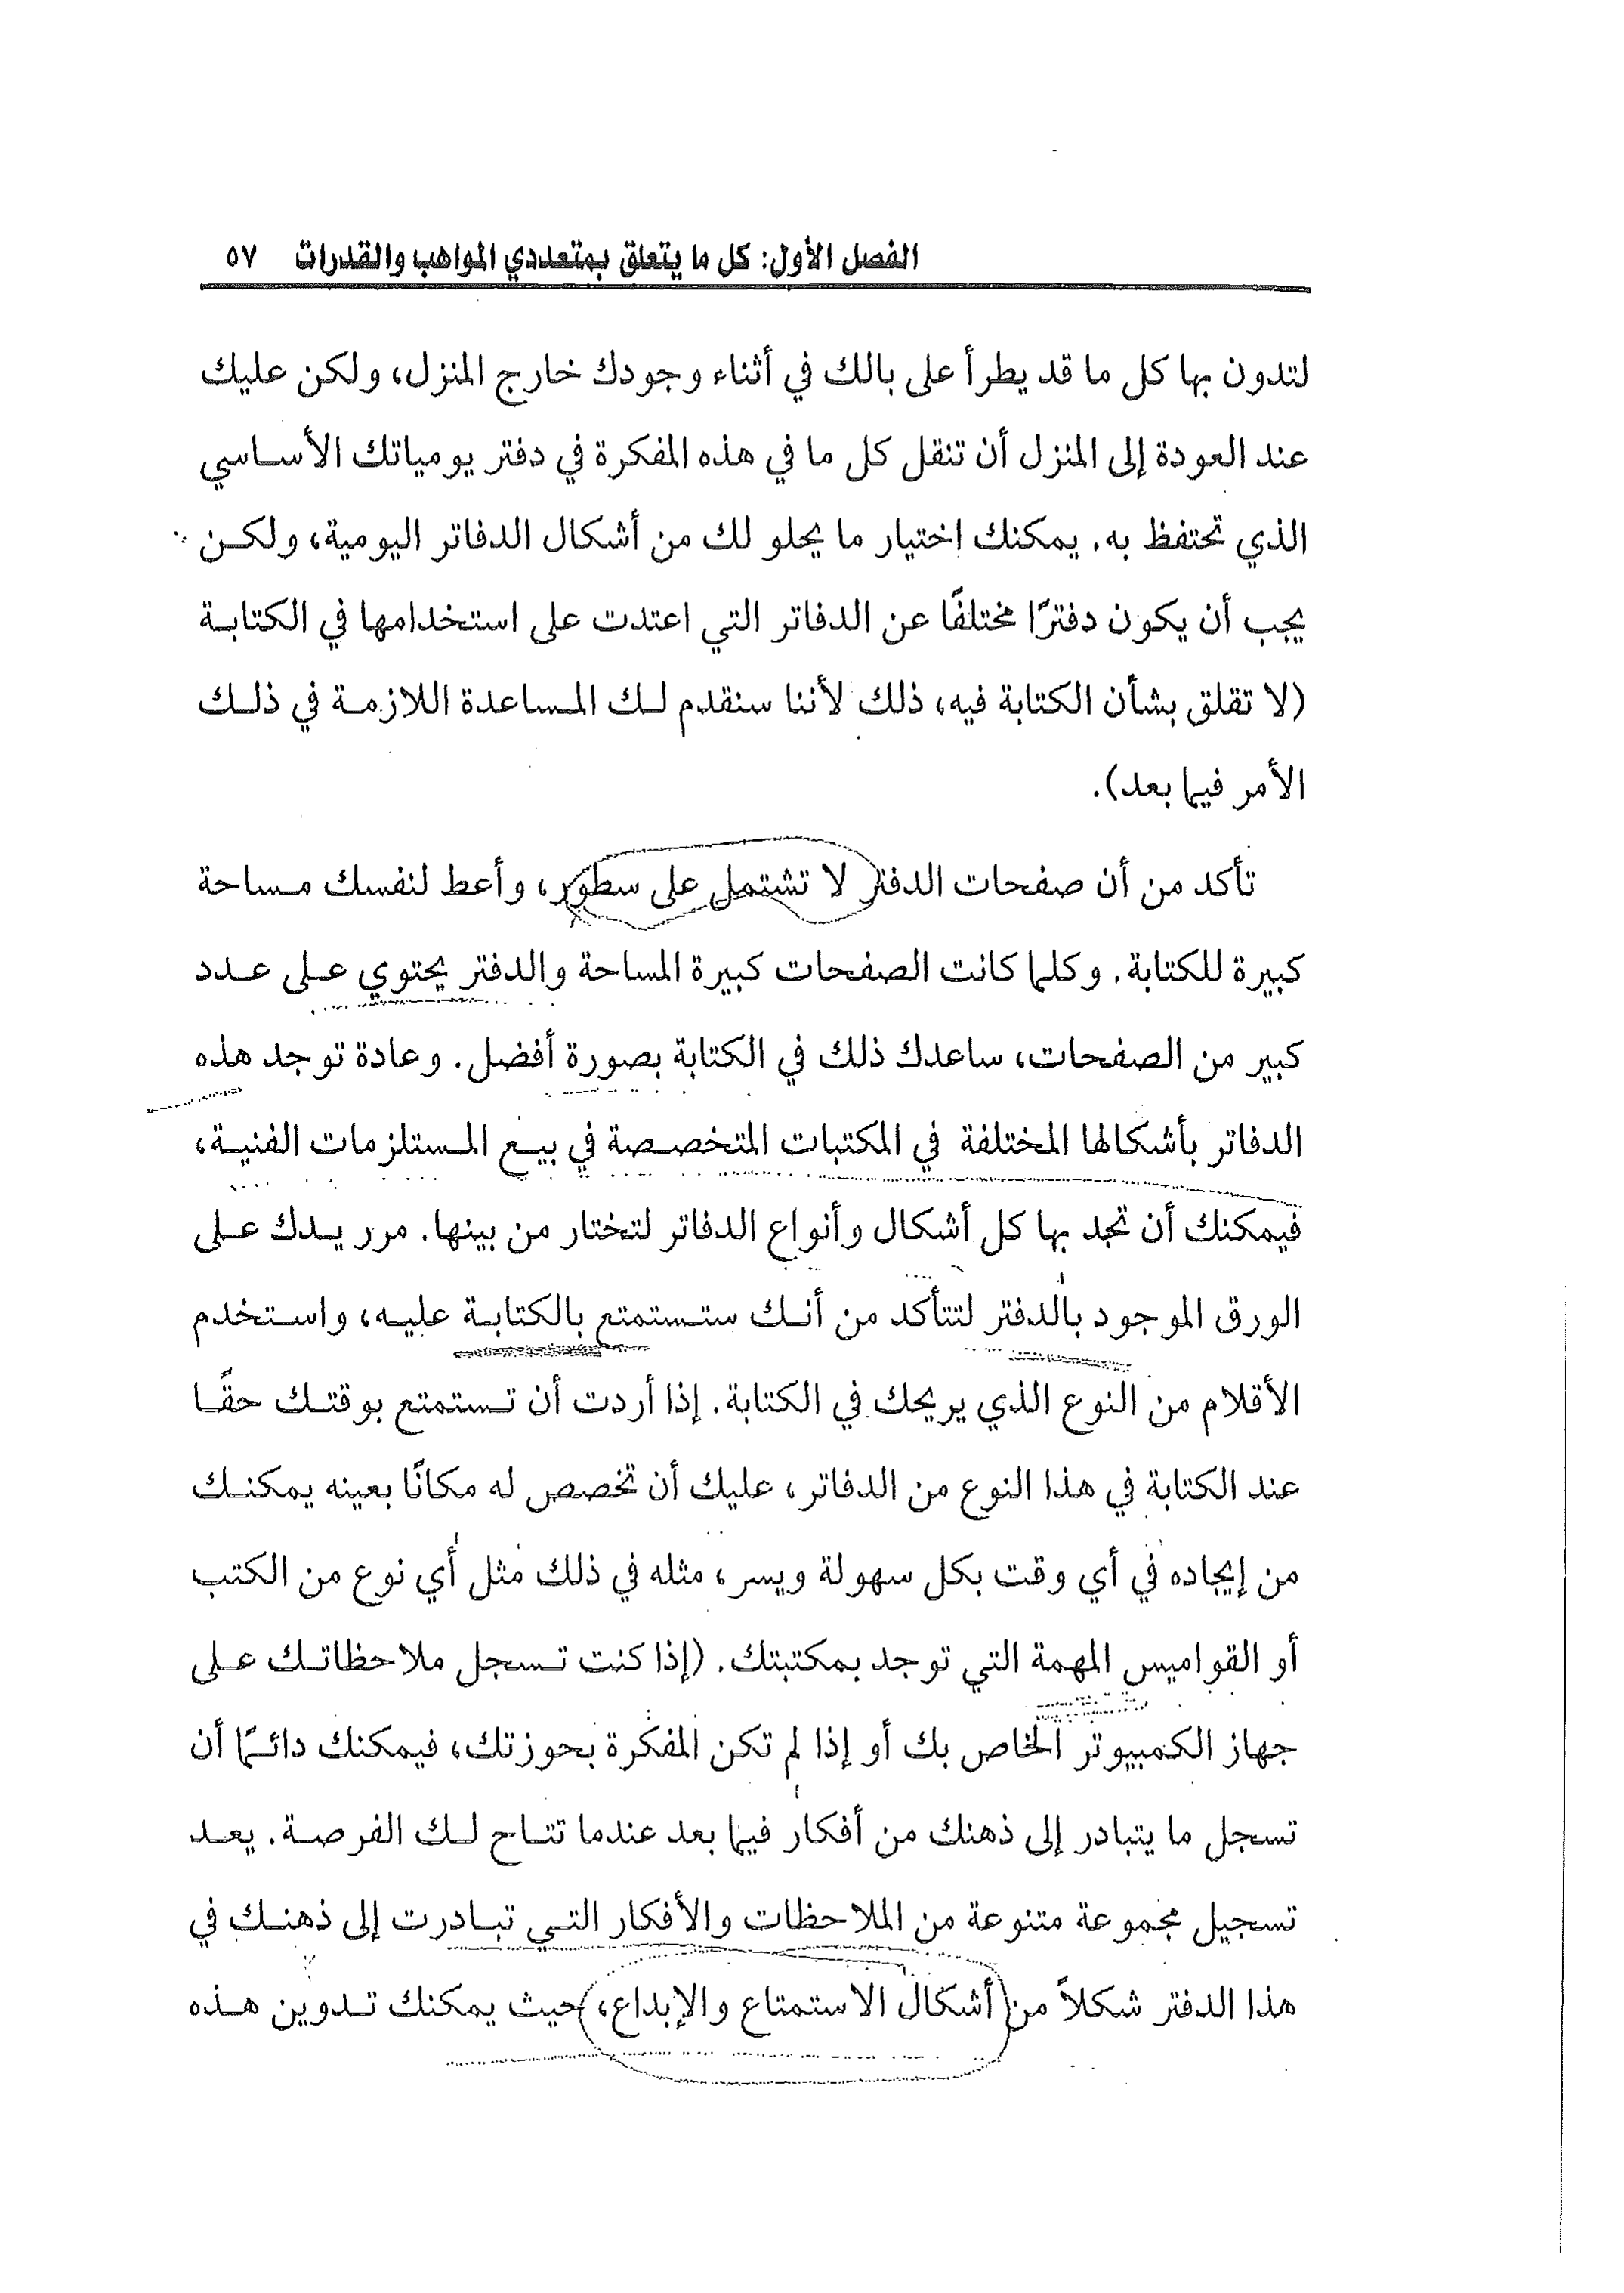 الفصل الأول: كل ما يتعلق بمتعددي المواهب والقدرات ٥٧
لتدون بها كل ما قد يطرأ على بالك في أثناء وجودك خارج المنزل، ولكن عليك
عند العودة إلى المنزل أن تنقل كل ما في هذه المفكرة في دفتر يومياتك الأساسي
الذي تحتفظ به. يمكنك اختيار ما يحلو لك من أشكال الدفاتر اليومية، ولكن
يجب أن يكون دفترًا مختلفًا عن الدفاتر التي اعتدت على استخدامها في الكتابة
(لا تقلق بشأن الكتابة فيه، ذلك لأننا سنقدم لك المساعدة اللازمة في ذلك
الأمر فيما بعد).
تأكد من أن صفحات الدفتر لا تشتمل على سطور، وأعط لنفسك مساحة
كبيرة للكتابة. وكلما كانت الصفحات كبيرة المساحة والدفتر يحتوي على عدد
كبير من الصفحات، ساعدك ذلك في الكتابة بصورة أفضل. وعادة توجد هذه
الدفاتر بأشكالها المختلفة في المكتبات المتخصصة في بيع المستلزمات الفنية،
فيمكنك أن تجد بها كل أشكال وأنواع الدفاتر لتختار من بينها. مرر يدك على
الورق الموجود بالدفتر لتتأكد من أنك ستستمتع بالكتابة عليه، واستخدم
الأقلام من النوع الذي يريحك في الكتابة. إذا أردت أن تستمتع بوقتك حقًا
عند الكتابة في هذا النوع من الدفاتر، عليك أن تخصص له مكانًا بعينه يمكنك
من إيجاده في أي وقت بكل سهولة ويسر، مثله في ذلك مثل أي نوع من الكتب
أو القواميس المهمة التي توجد بمكتبتك. (إذا كنت تسجل ملاحظاتك على
جهاز الكمبيوتر الخاص بك أو إذا لم تكن المفكرة بحوزتك، فيمكنك دائمًا أن
تسجل ما يتبادر إلى ذهنك من أفكار فيما بعد عندما تتاح لك الفرصة. يعد
تسجيل مجموعة متنوعة من الملاحظات والأفكار التي تبادرت إلى ذهنك في
هذا الدفتر شكلاً من أشكال الاستمتاع والإبداع، حيث يمكنك تدوين هذه